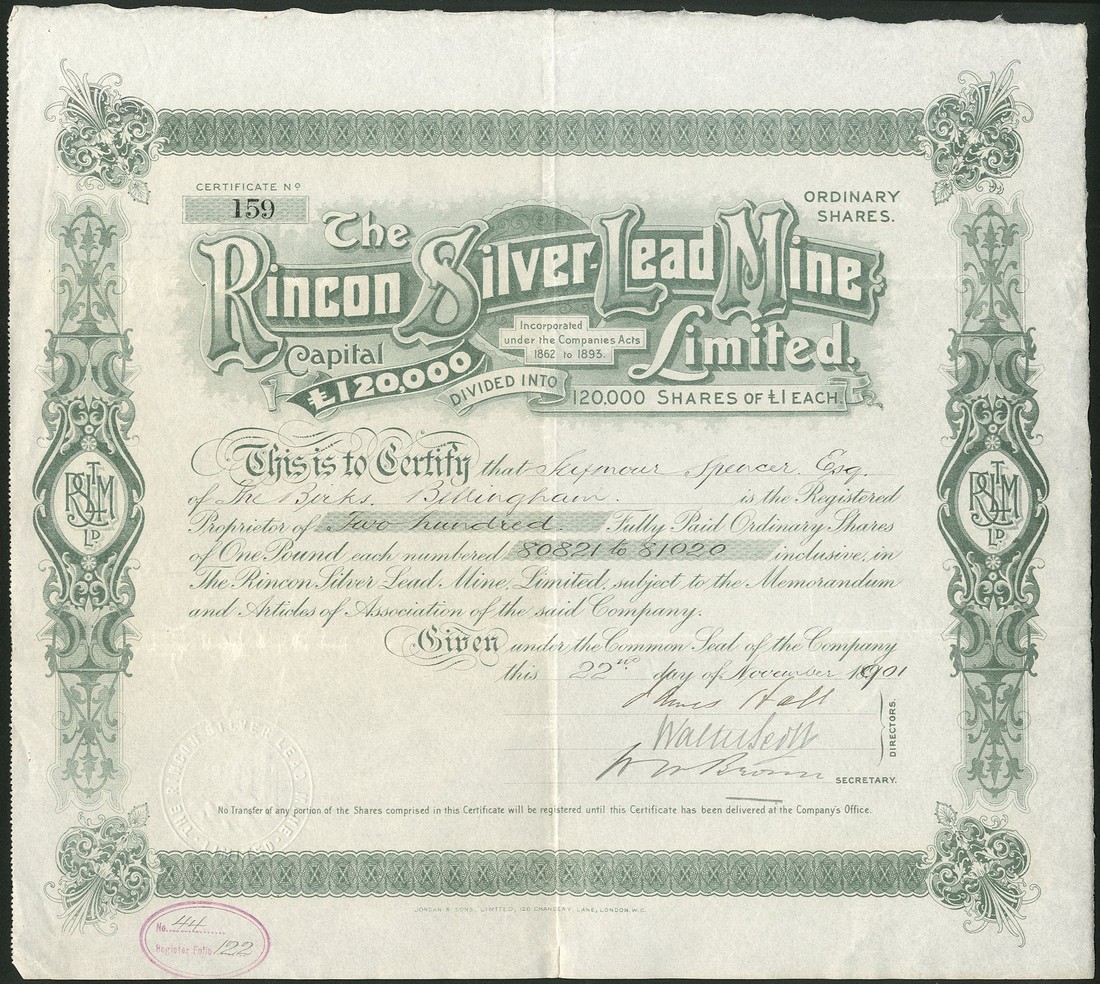 CERTIFICATE No
159
ORDINARY
SHARES.
The
Rincon Silver-Lead Mine
Limited.
Incorporated
under the Companies Acts
1862 to 1893.
Capital
£120,000
DIVIDED INTO
120,000 SHARES OF £1 EACH.
This is to Certify that Seymour Spencer. Esq.
of The Birks. Billingham. is the Registered
Proprietor of Two hundred. Fully Paid Ordinary Shares
of One Pound each numbered 80821 to 81020 inclusive, in
The Rincon Silver Lead Mine, Limited, subject to the Memorandum
and Articles of Association of the said Company.
Given under the Common Seal of the Company
this 22nd day of November 1901
James Hall
Walter Scott
DIRECTORS.
W W Brown SECRETARY.
THE RINCON SILVER LEAD MINE LIMITED
No Transfer of any portion of the Shares comprised in this Certificate will be registered until this Certificate has been delivered at the Company's Office.
JORDAN & SONS, LIMITED, 120 CHANCERY LANE, LONDON, W.C.
No. 44
Register Folio 122